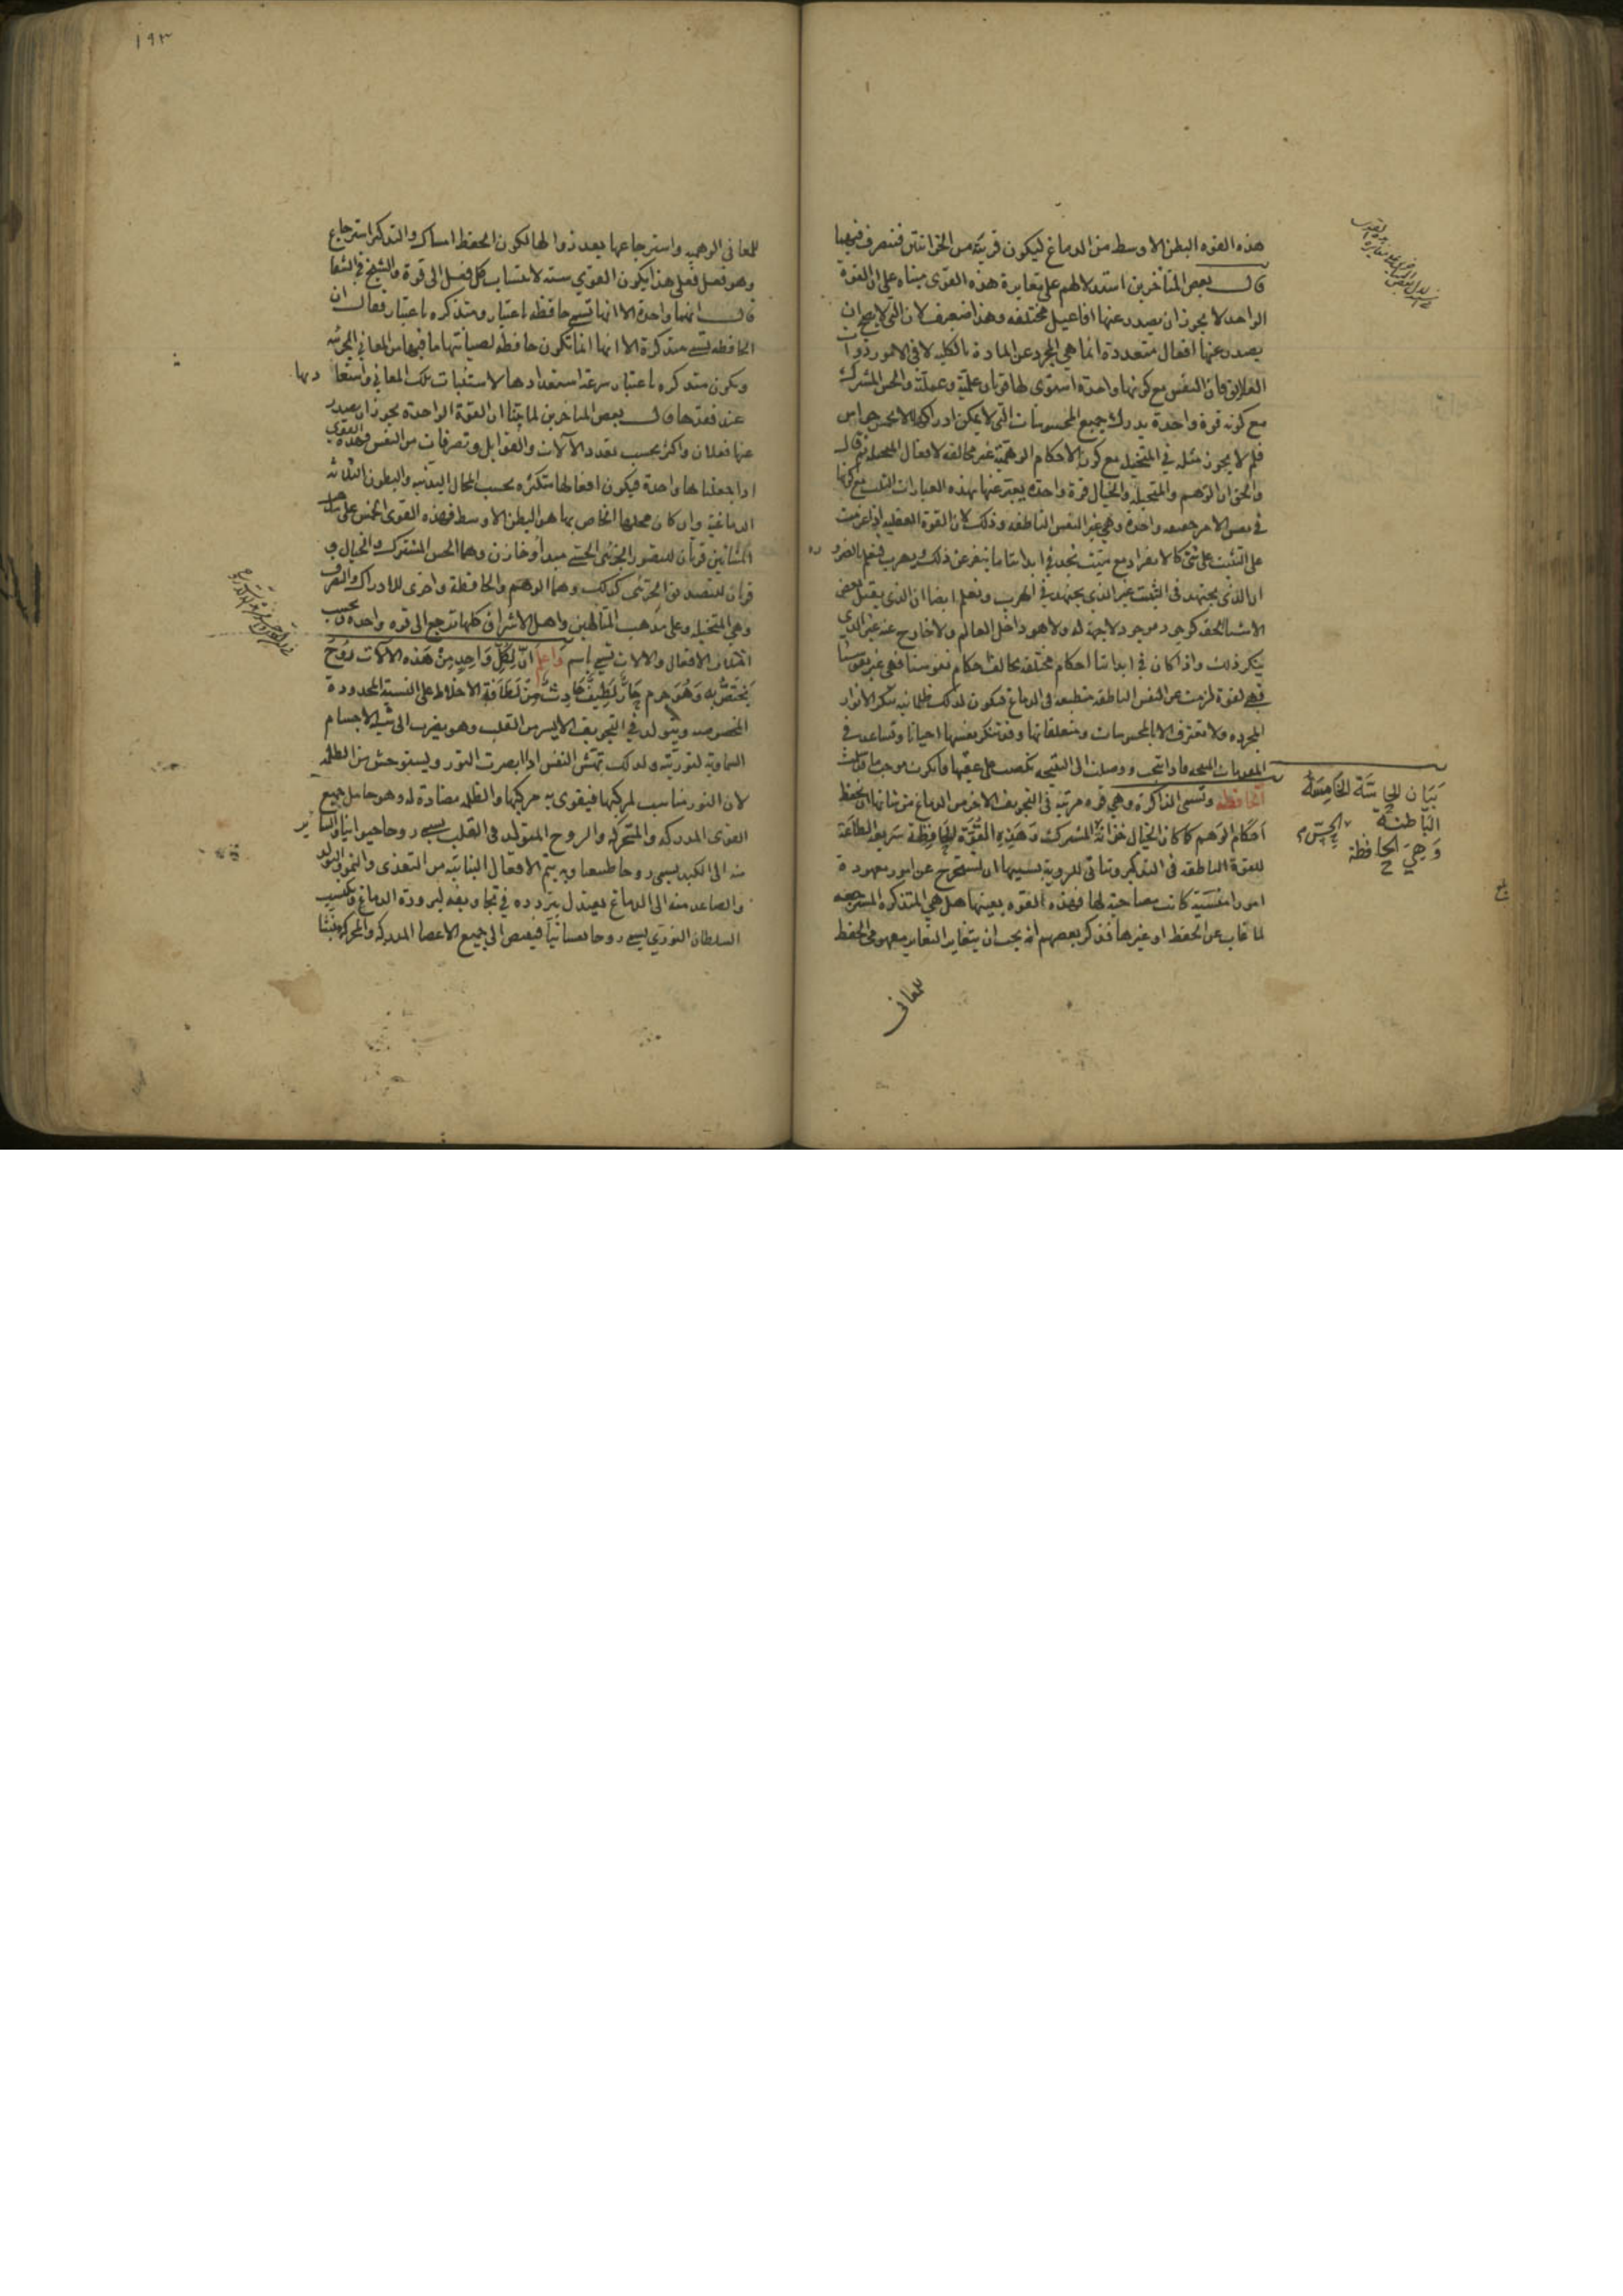 هذه القوه البطن الاوسط من الدماغ ليكون قريبة من الخزانتين فتتصرف فيهما
قال بعض المتاخرين استدلالهم على مغايرة هذه القوى مبناه على ان القوة
الواحد لا يجوز ان يصدر عنها افاعيل مختلفه وهذا ضعيف لان التي لا يصح ان
يصدر عنها افعال متعددة انما هي المجرد عن المادة بالكليه لا في الامور ذوات
العلايق فان النفس مع كونها واحدة لها قوتان علمية وعملية والحس المشترك
مع كونه قوة واحدة يدرك جميع المحسوسات التي لا يمكن ادراكها الا بخمس حواس
فلم لا يجوز مثله في المتخيله مع كون الاحكام الوهمية غير مخالفه لافعال المتخيله ثم قال
والحق ان الوهم والمتخيله والخيال قوة واحدة يعبر عنها بهذه العبارات الثلث مع كونها
في نفس الامر واحدة وهي غير النفس الناطقه وذلك لان القوة العقليه اذا عزمت
على التثبت على شئ كالانفراد مع ميت نجد في ابداننا ما ينفر عن ذلك ويهرب فنعلم بالضرو ره
ان الذي يجتهد في التثبت غير الذي يجتهد في الهرب ونعلم ايضا ان الذي يقبل بعض
الاشياء الحقه كوجود موجود لا جهة له ولا هو داخل العالم ولا خارج عنه غير الذي
ينكر ذلك واذا كان في ابداننا احكام مختلفه تخالف احكام نفوسنا فهي غير نفوسنا
فهي لقوة لزمت عن النفس الناطقه منطبعه في الدماغ فيكون لذلك ظلمانيه تنكر الانوار
المجرده ولا تعترف الا بالمحسوسات ومتعلقاتها وقد تنكر نفسها احيانا وتساعد في
المقدمات المنتجه فاذا انتجت ووصلت الى النتيجه نكصت على عقبها فانكرت موجب ما قالت
الحافظه وتسمى الذاكرة وهي قوه مرتبه في التجويف الاخر من الدماغ من شانها ان تحفظ
احكام الوهم كما كان الخيال خزانة المشترك وهذه القوة الحافظة سريعة الطاعة
للقوة الناطقه في التذكير وتاتى للروية بسببها ان تستخرج عن امور معهودة
امورا منسية كانت مصاحبة لها فهذه القوه بعينها هل هي المتذكرة المسترجعه
لما غاب عن الحفظ او غيرها فذكر بعضهم انه يجب ان يتغاير التغاير مفهومى الحفظ
للمعانى
بيان الحاسة الخامسة
الباطنة
وهي الحافظة
١٩٣
للمعانى الوهميه واسترجاعها بعد زوالها لكون الحفظ امساك والتذكر استرجاع
وهو فعل فعلى هذا يكون القوي سته لانتساب كل فعل الى قوة والشيخ في الشفا
قال انهما واحدة الا انها تسمى حافظه باعتبار ومتذكره باعتبار فقال ان
الحافظه تسمى متذكرة الا انها انما تكون حافظة لصيانتها ما فيها من المعاني الجزئيه
ويكون متذكره باعتبار سرعة استعدادها لاستثبات تلك المعاني واستعا دتها
عند فقدها وقال بعض المتاخرين لما بينا ان القوة الواحدة يجوز ان يصدر
عنها فعلان واكثر بحسب تعدد الآلات والقوابل وتصرفات من النفس وهذه القوى
اذا جعلناها واحدة فيكون افعالها متكثره بحسب المحال البدنيه والبطون الثلاثه
الدماغية وان كان محلها الخاص بها هو البطن الاوسط فهذه القوى الخمس على مذهب
المشائين قوتان للتصور الجزئي الحسي مبدأ وخازن وهما الحس المشترك والخيال و
قوتان للتصديق الجزئي كذلك وهما الوهم والحافظة واخرى للادراك والتصرف
وهي المتخيله وعلى مذهب المتالهين واهل الاشراق كلها ترجع الى قوه واحده وبحسب
اختلاف الافعال والالات تسمي باسم واعلم ان لكل واحد من هذه الآلات روح
يختص به وهو جرم حار لطيف حادث من لطافة الاخلاط على النسبة المحدودة
المخصوصه ويتولد في التجويف الايسر من القلب وهو يقرب الى شبه الاجسام
السماوية لنوريته ولذلك تهتش النفس اذا ابصرت النور ويستوحش من الظلمه
لان النور مناسب لمركبها فيقوى به مركبها والظلمه مضادة له وهو حامل جميع
القوى المدركه والمتحركه والروح المتولد في القلب يسمى روحا حيوانيا والسا ير
منه الى الكبد يسمى روحا طبيعيا وبه يتم الافعال النباتية من التغذي والنمو والتولد
والصاعد منه الى الدماغ يعتدل بتردده في تجاويفه لبرودة الدماغ ويكتسب
السلطان النوري يسمى روحا نفسانيا فيفيض الى جميع الاعضا المدركه والمحركه منبثا